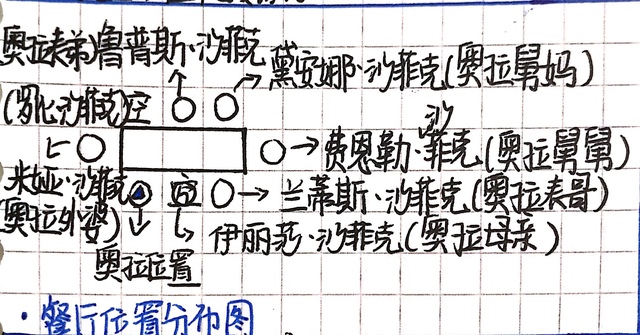 奥拉表弟)鲁普斯·沙菲克
黛安娜·沙菲克(奥拉舅妈)
(罗化沙菲克)空
费恩勒·沙菲克(奥拉舅舅)
米娅·沙菲克
(奥拉外婆)
空
兰蒂斯·沙菲克(奥拉表哥)
伊丽莎·沙菲克(奥拉母亲)
奥拉位置
·餐厅位置分布图